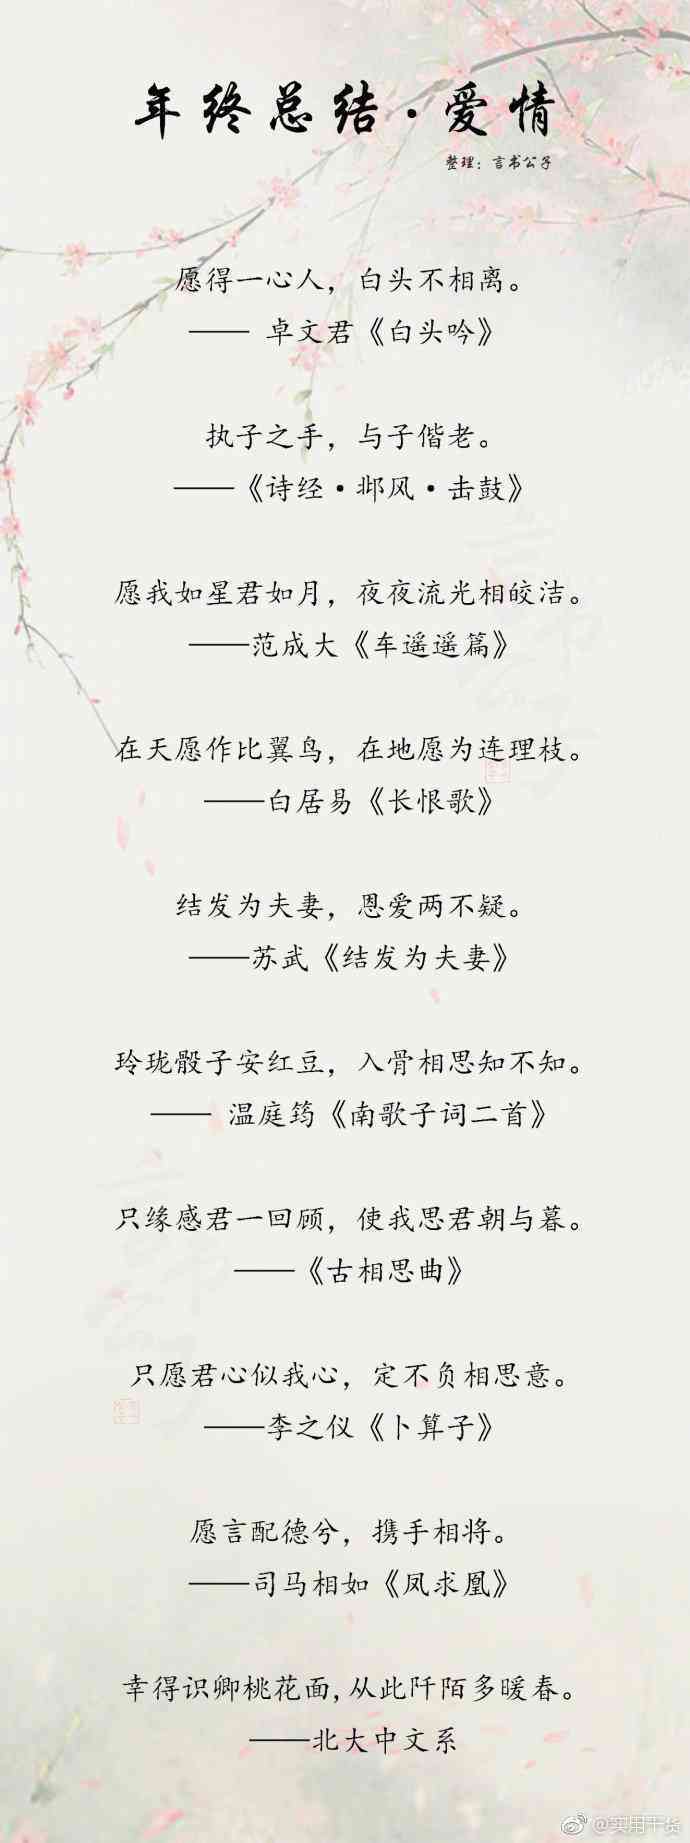 年终总结·爱情
整理：言书公子
愿得一心人，白头不相离。
—— 卓文君《白头吟》
执子之手，与子偕老。
——《诗经·邶风·击鼓》
愿我如星君如月，夜夜流光相皎洁。
——范成大《车遥遥篇》
在天愿作比翼鸟，在地愿为连理枝。
——白居易《长恨歌》
结发为夫妻，恩爱两不疑。
——苏武《结发为夫妻》
玲珑骰子安红豆，入骨相思知不知。
—— 温庭筠《南歌子词二首》
只缘感君一回顾，使我思君朝与暮。
——《古相思曲》
只愿君心似我心，定不负相思意。
——李之仪《卜算子》
愿言配德兮，携手相将。
——司马相如《凤求凰》
幸得识卿桃花面,从此阡陌多暖春。
——北大中文系
@实用干货